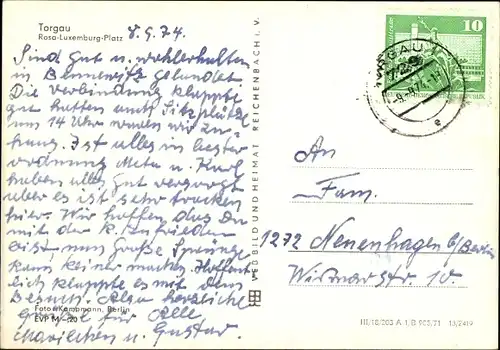 Torgau
Rosa-Luxemburg-Platz
8.9.74.
Sind gut u. wohlerhalten
in Bennewitz gelandet
Die Verbindung klappte
gut hatten auch Sitzplätze
um 14 Uhr waren wir zu-
hause. Ist alles in bester
ordnung Meta u. Karl
haben alles gut versorgt
aber es ist sehr trocken
hier. Wir hoffen das Du
mit der K. zufrieden
bist, nun Große Sprünge
kann keiner machen. Hoffent-
lich klappte es mit dem
Besuch. Also herzliche
Grüße für Alle
Mariechen u. Gustav.
Foto: Kampmann, Berlin
EVP M -,20
VEB BILD UND HEIMAT REICHENBACH I. V.
10
TORGAU
An
Fam.
1272 Neuenhagen b/Berlin
Wismarstr. 10.
III/18/203 A 1/B 905/71 13/2419